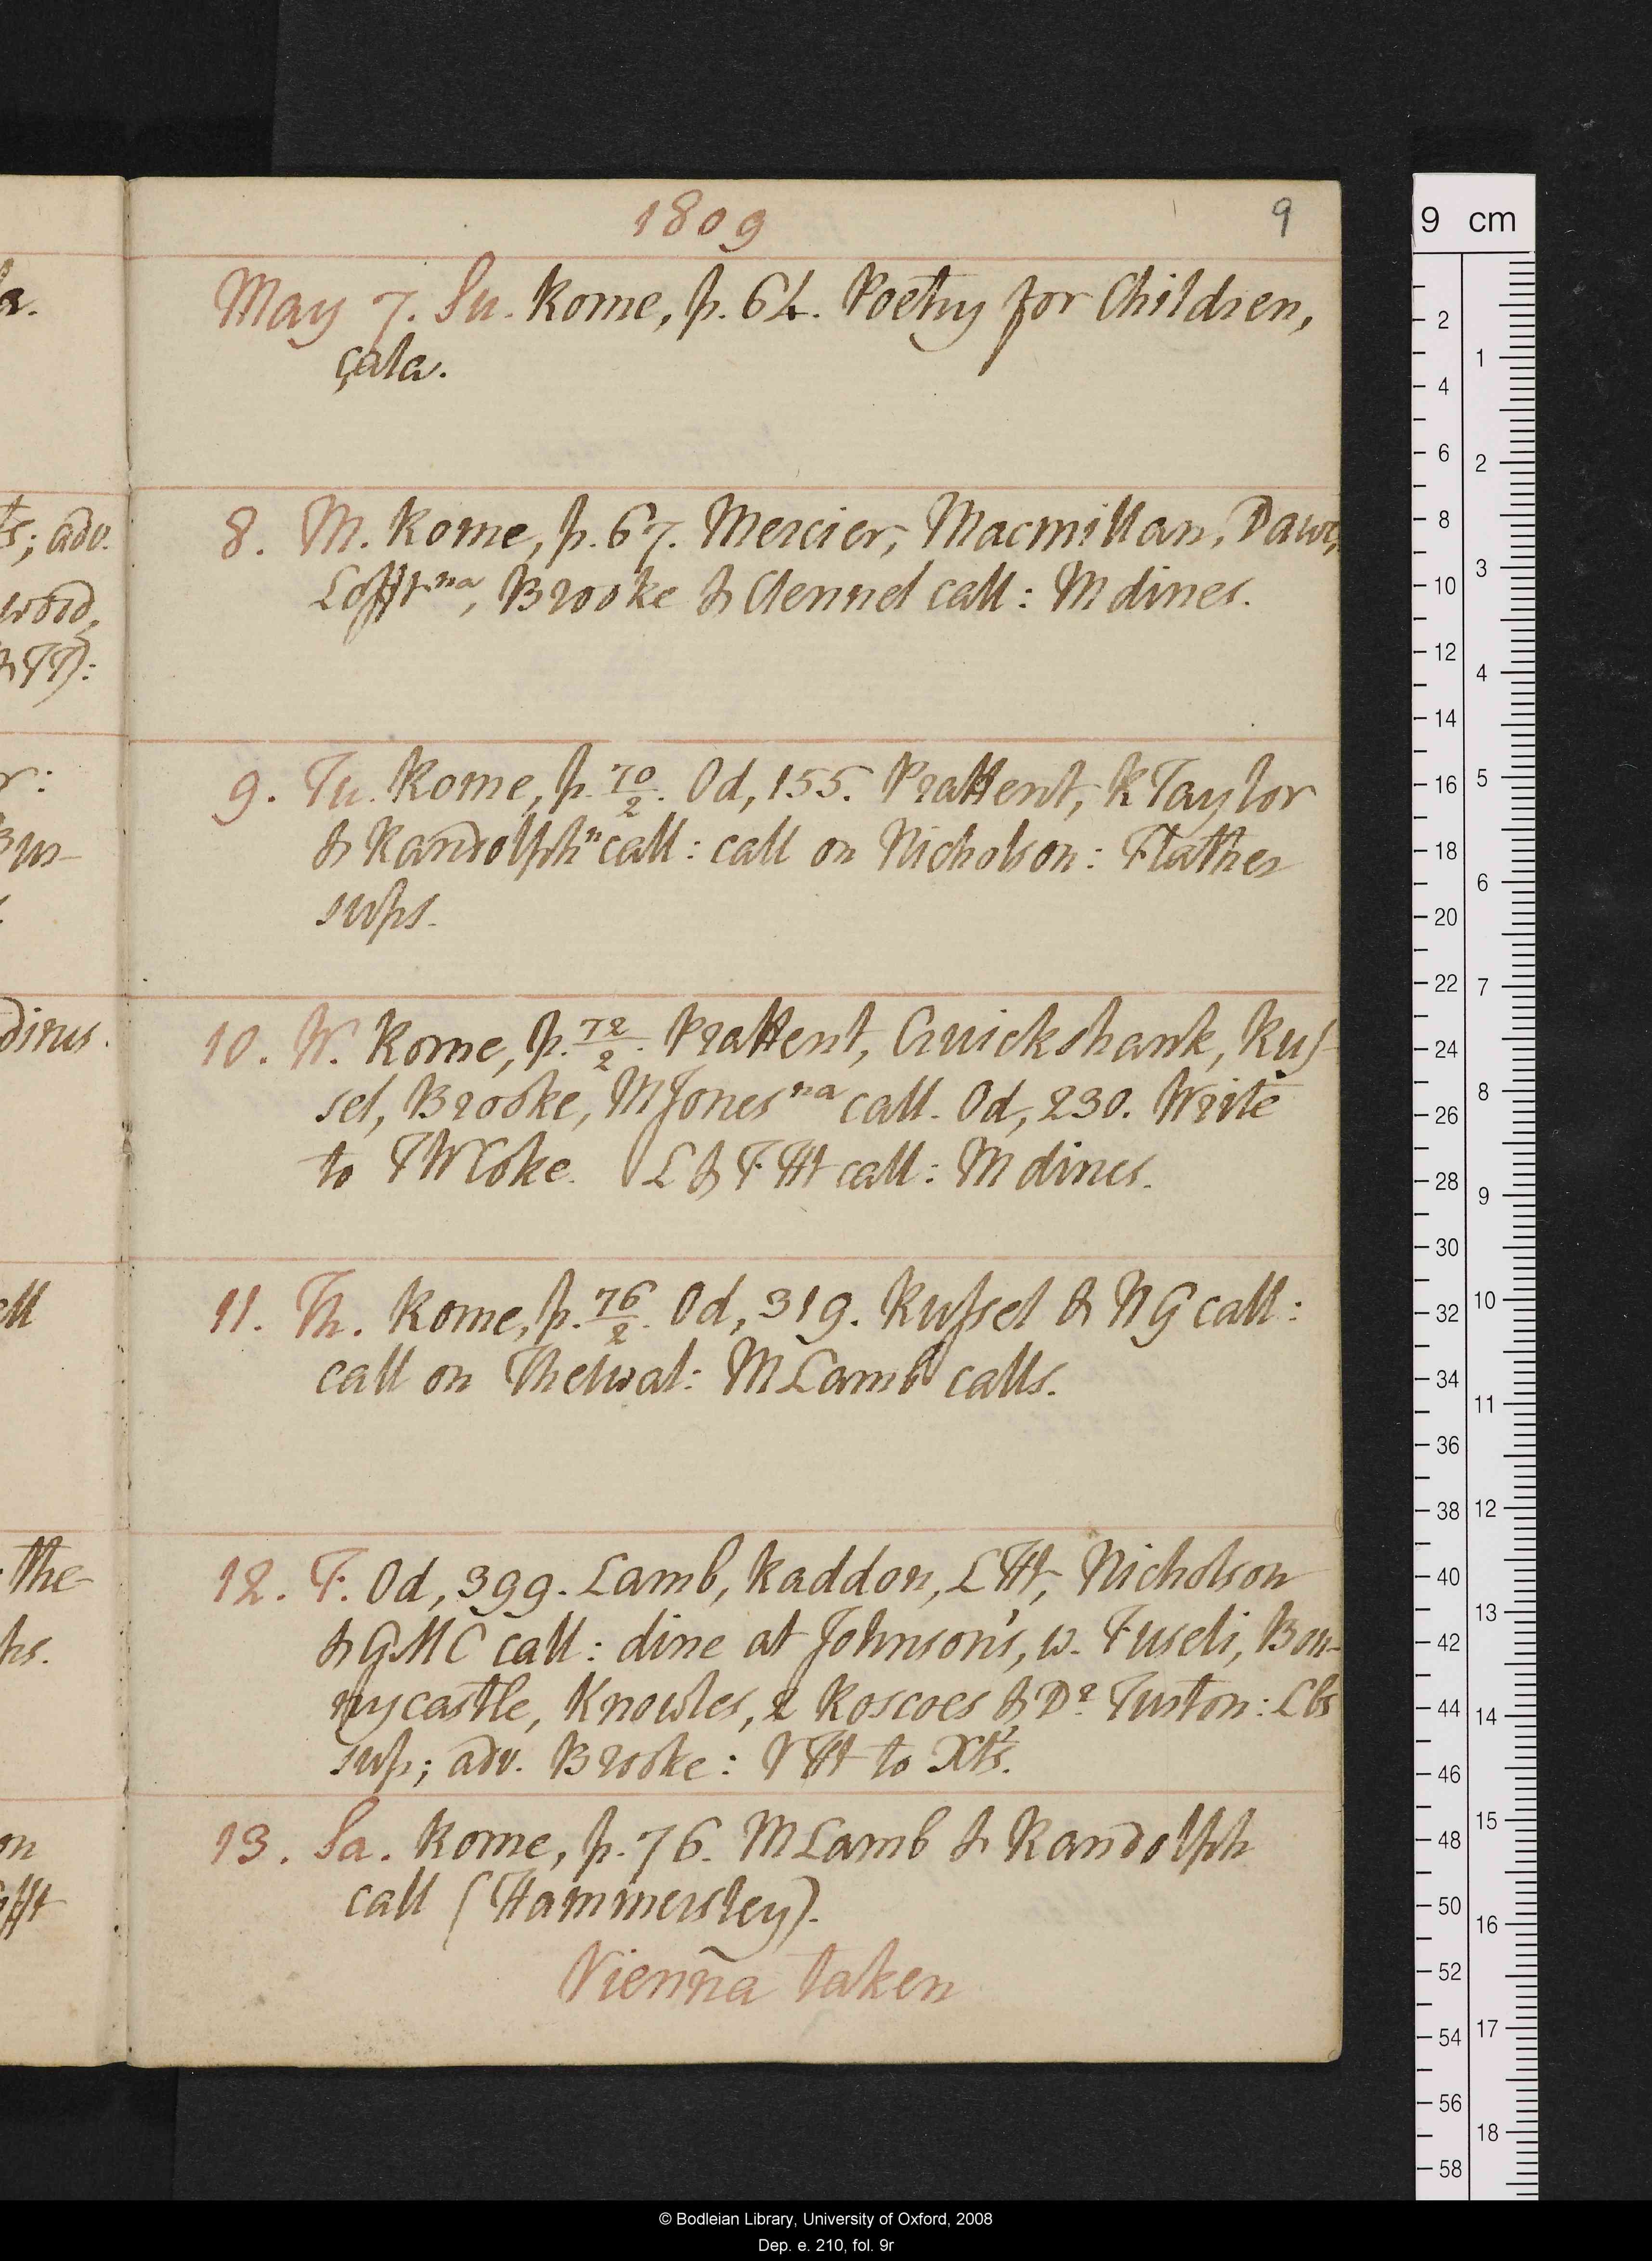 1809
9
May 7. Su. Rome, p. 64. Poetry for Children,
çala.
8. M. Rome, p. 67. Mercier, Macmillan, Dawe,
Lofft na, Brooke & Clennel call: M dines.
9. Tu. Rome, p. 70/2. Od, 155. Prattent, R Taylor
& Randolph n call: call on Nicholson: Flather
sups.
10. W. Rome, p. 72/2. Prattent, Cruickshank, Rus-
sel, Brooke, M Jones na call. Od, 230. Write
to TW Coke. L & F Ht call: M dines.
11. Th. Rome, p. 76/2. Od, 319. Russel & N G call:
call on Thelwal: M Lamb calls.
12. F. Od, 399. Lamb, Raddon, L Ht, Nicholson
& GMC call: dine at Johnson's, w. Fuseli, Bon-
nycastle, Knowles, 2 Roscoes & Dr Turton: Lbs
sup; adv. Brooke: Ht to Xt's.
13. Sa. Rome, p. 76. M Lamb & Randolph
call (Hammersley).
Vienna taken
a.
ts; adv.
wood,
& TT):
r:
Bur-
dines.
ell
the-
hs.
on
fft
9 cm
2
4
6
8
10
12
14
16
18
20
22
24
26
28
30
32
34
36
38
40
42
44
46
48
50
52
54
56
58
1
2
3
4
5
6
7
8
9
10
11
12
13
14
15
16
17
18
© Bodleian Library, University of Oxford, 2008
Dep. e. 210, fol. 9r